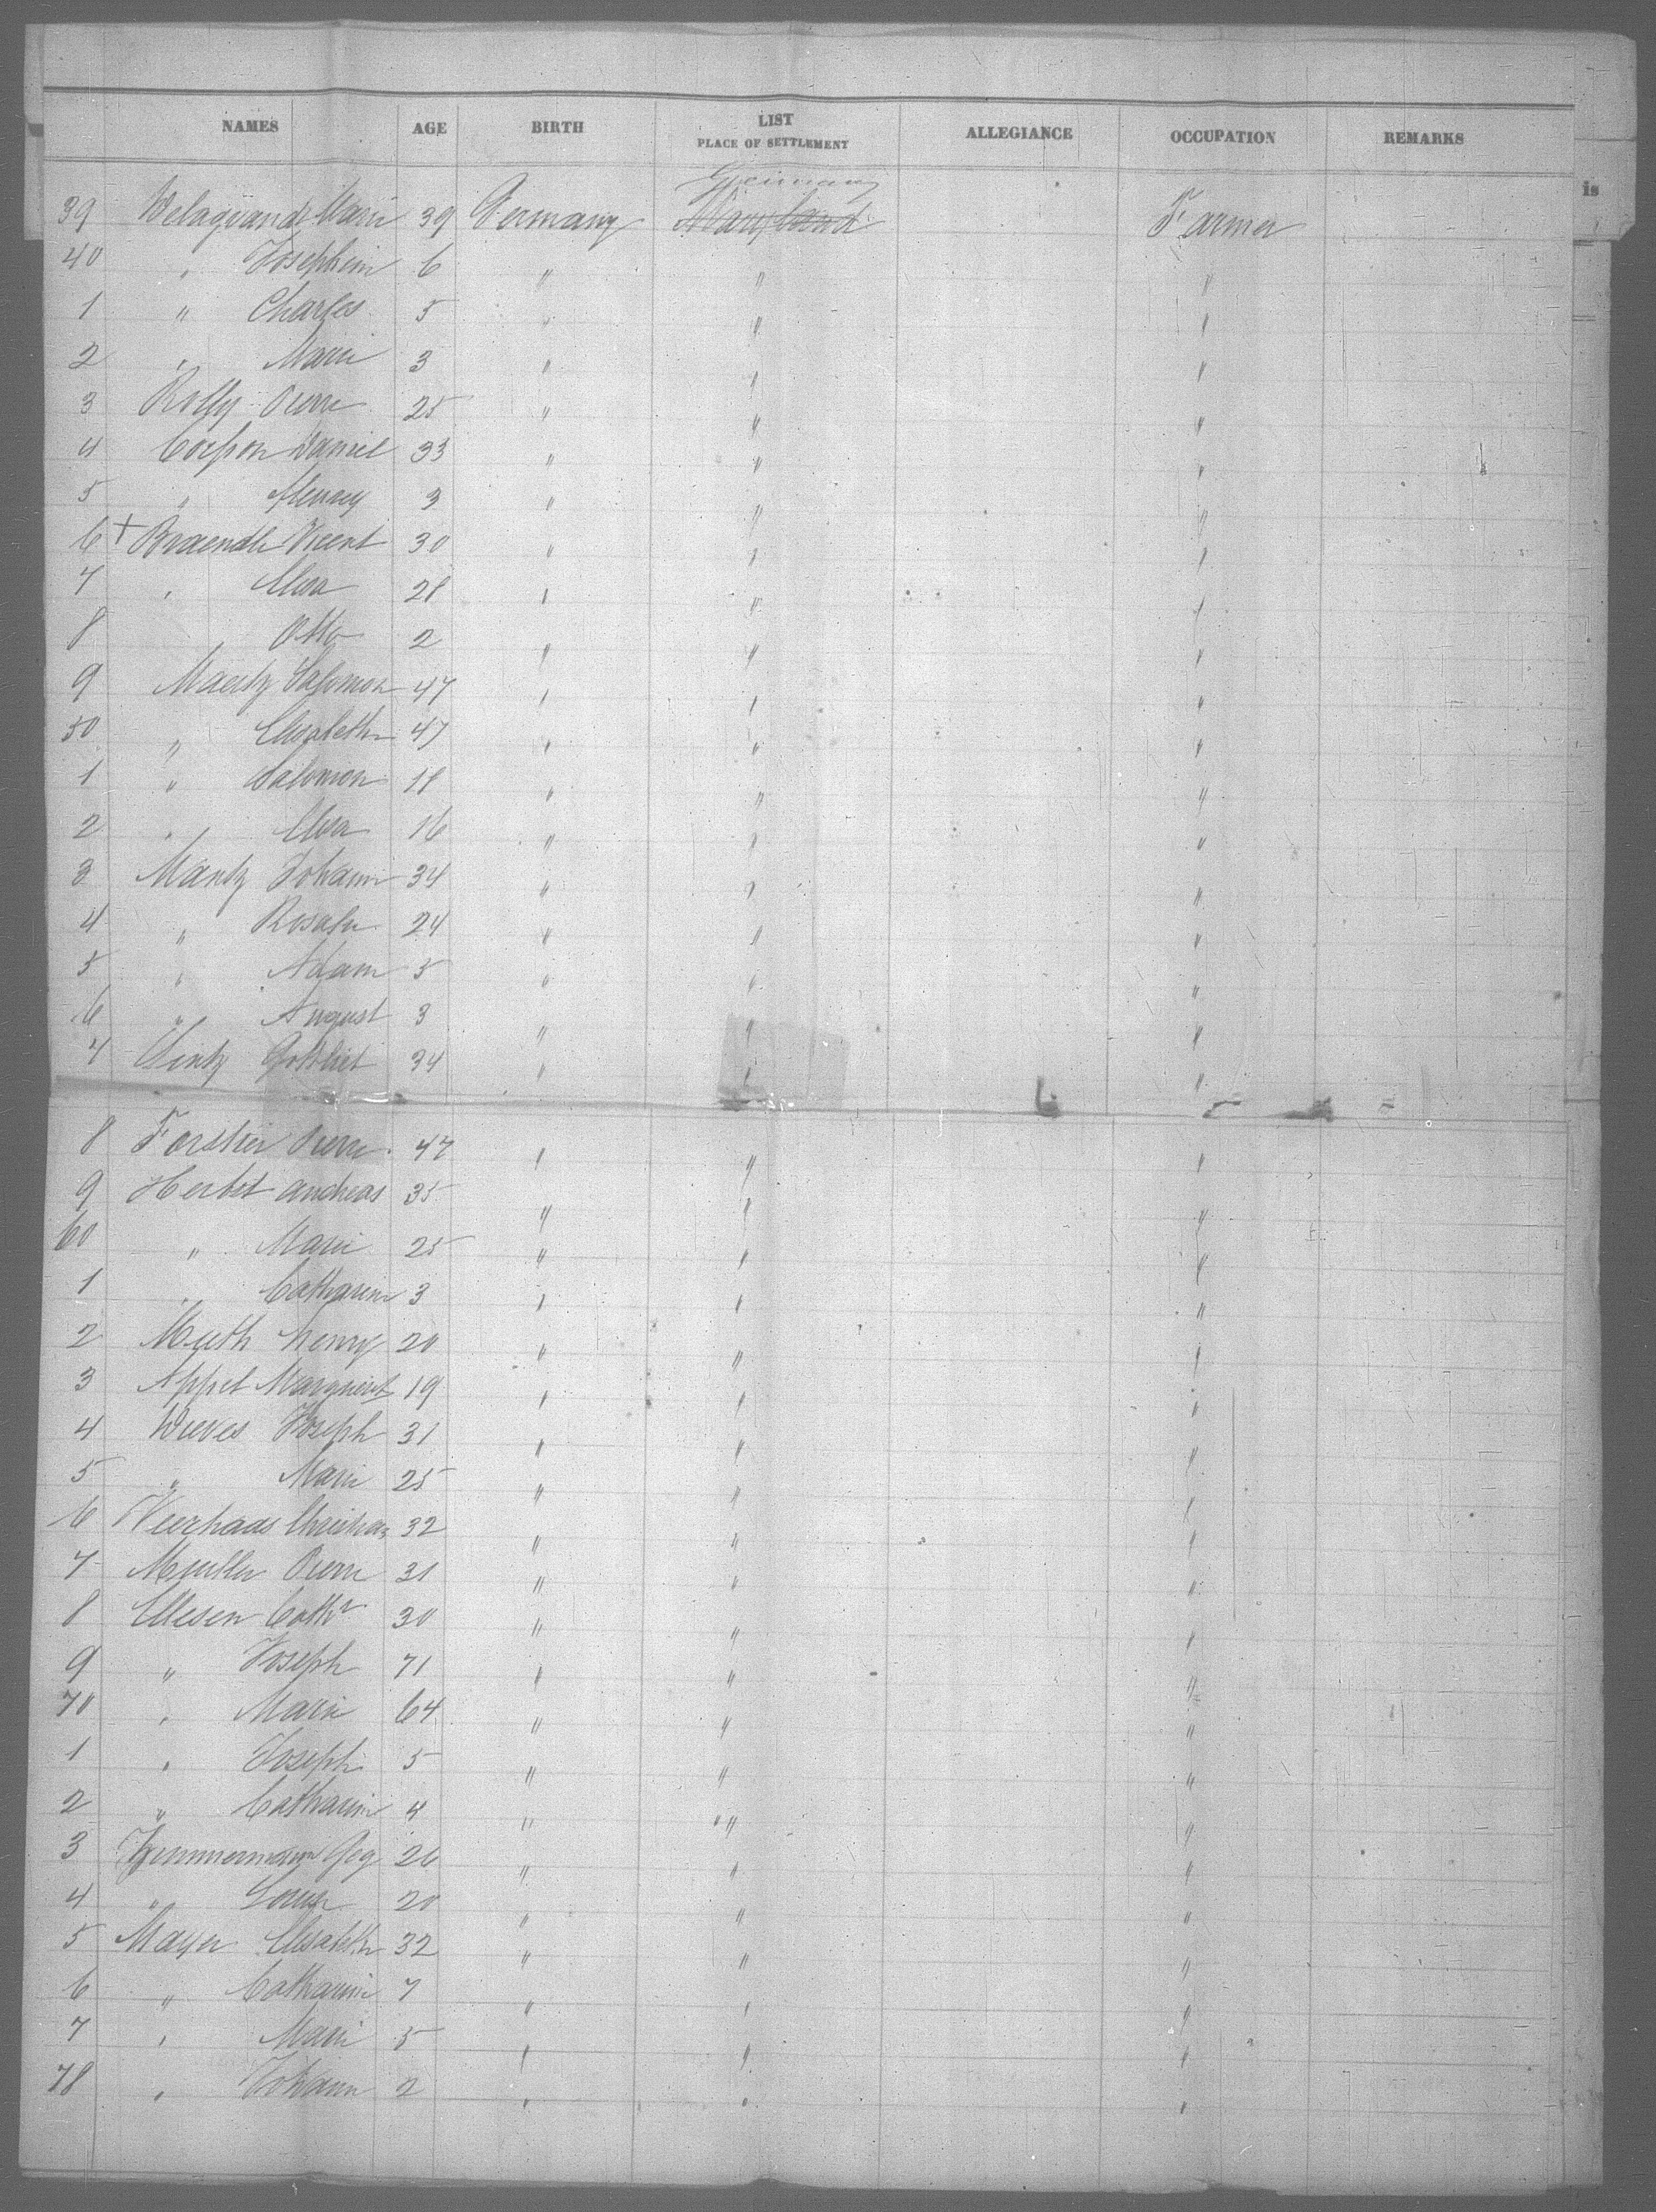 NAMES AGE BIRTH LIST PLACE OF SETTLEMENT ALLEGIANCE OCCUPATION REMARKS
is
Germany
39 Marie 39 Germany Maryland Farmer
40 " Josephin 6 " " "
1 " Charles 5 " " "
2 " Marie 3 " " "
3 Rolly Pierre 25 " " "
4 Daniel 33 " " "
5 " Henry 3 " " "
6 + Braendle Vicent 30 " " "
7 " Elisa 28 " " "
8 Otto 2 " " "
9 Salomon 47 " " "
50 " Elisabeth 47 " " "
1 " Salomon 18 " " "
2 " Elisa 16 " " "
3 Mantz Johann 34 " " "
4 " Rosalie 24 " " "
5 " Adam 5 " " "
6 " August 3 " " "
7 Gottlieb 34 " " "
8 Pierre 47 " " "
9 Herbst Andreas 35 " " "
60 " Marie 25 " " "
1 " Catharine 3 " " "
2 Muth Henry 20 " " "
3 Appel 19 " " "
4 Joseph 31 " " "
5 " Marie 25 " " "
6 32 " " "
7 Muller Pierre 31 " " "
8 Ellesen Cathr 30 " " "
9 " Joseph 71 " " "
70 " Marie 64 " " "
1 " Joseph 5 " " "
2 " Catharine 4 " " "
3 Zimmermann Geg 26 " " "
4 " 20 " " "
5 Mayer Elisabeth 32 " " "
6 " Catharine 7 " " "
7 " Marie 5 " " "
78 " Johann 2 " " "